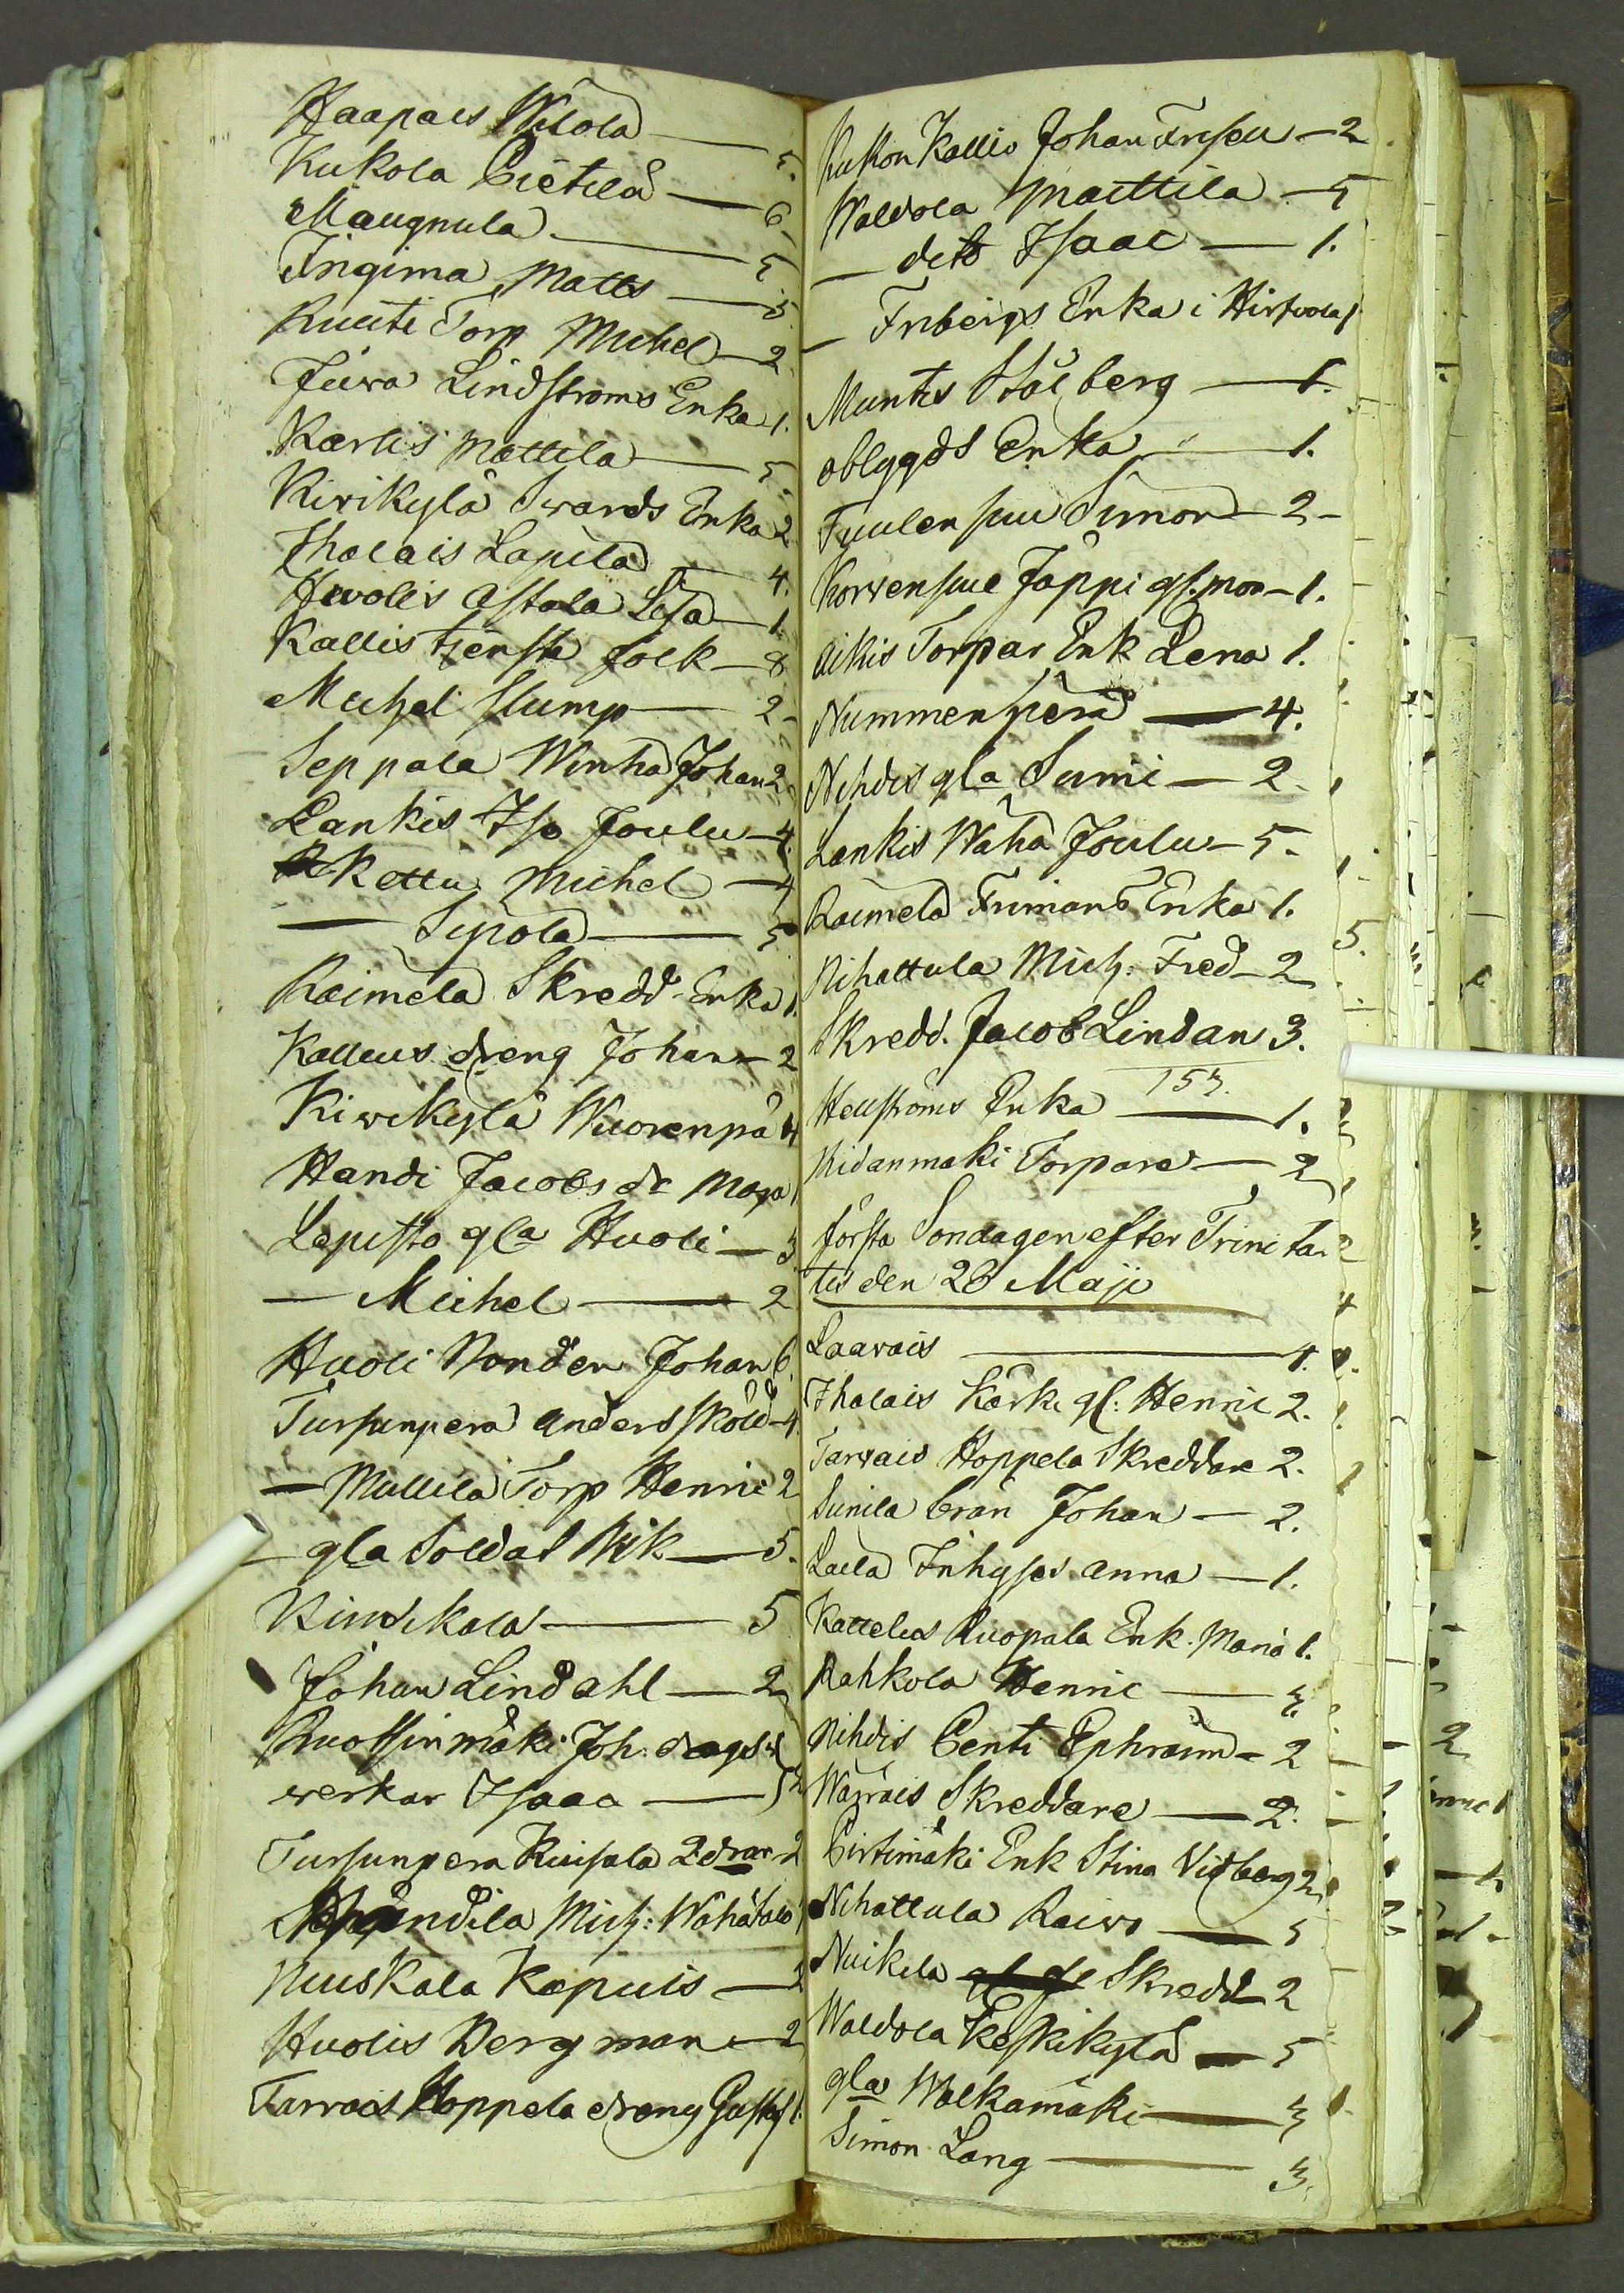 Haapais Wilola — 5.
Kukola Pietilä — 6
Maugnula — 5
Tingima Matts — 5
Kuuti Torp Michel — 2
Juwa Lindstroms Enka 1.
Karlis Mattila — 5
Kirikylä Swards Enka 2
Ihalais Lapila — 4.
Huolis Astala Lisa — 1.
Kallis tjenste folk — 8
Michel Slump — 2 -
Seppala Winha Johan 2
Lankis Iso Joulu — 4
Kettu Michel — 4
— Sipola — 5
Raimela Skredd. Enka 1.
Kalleus dreng Johan — 2
Kirikylä Wuorenpä 4
Handi Jacobs dr Maja 1
Lepisto gla Huoli — 3
— Michel — 2
Huoli Nonden Johan 6
Tursunpera Anders Sköld — 4.
— Mullila Torp Henric 2
— gla Soldat Rik — 5.
Kindikala — 5
Johan Lindahl — 2
Ruossinmäki Joh. dags
werkar Isaac — 2
Tursunpera Kuisala 2 drar 2
Mich: Wähätalo 1
Nuuskala Kapuis — 2
Huolis Bergman — 2
Tarvais Hoppela dreng Gustaf 1.
Kukon Kallio Johan Ersson — 2
Waldola Mattila — 5
— deto Isaac — 1.
— Fribergs Enka i Hirfvola 1
Muntis Stålberg — 1.
oblygds Enka — 1.
Tuulensuu Simon — 2 -
Korvensuu Jöppi gl. mor — 1.
Aikis Torpar Enk Lena 1.
Nummenpera — 4.
Nihdis gla Sumi — 2.
Lankis Wähä Joulu — 5.
Raimela Frimans Enka 1.
Nihattula Mich: Fred — 2
Skredd. Jacob Lindan 3.
157.
Hellströms Enka — 1.
Kidanmaki Torpare — 2
första Sondagen efter Trinita
tis den 28 Maji
Laavais — 4.
Ihalais Kärki gl: Henric 2.
Tarvais Hoppela Skreddare 2.
Sunila Crän Johan — 2.
Laila Inhyses Anna — 1.
Kattelus Ruopala Enk. Maria 1.
Rahkola Henric — 3.
Nihdis Centi Ephraim — 2
Warrais Skreddare — 2.
Pirtimäki Enk Stina Vidberg 2
Nihattula Raivo — 5
Nuikila Skredd 2
Waldola Keskikylä — 5
gla Walkamäki — 3
Simon Lang — 3.